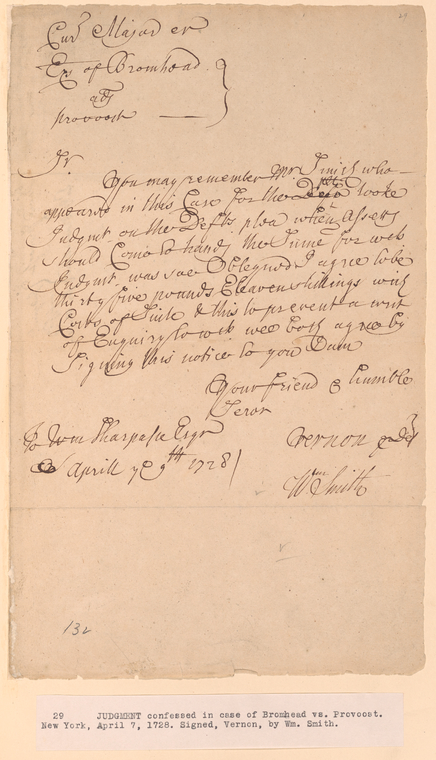 Cur Major er
Exr of Bromhead
ads
provoost
Sr.
You may remember Mr. Smith who
appeared in this Case for the plt tooke
Judgmt on the Defts plea when Assetts
should Come to hand, the Sume for wch
Judgmt was soe Obteyned I agree to be
thirty five pounds Eleaven shillings with
Costs of Suite & this to prevent a writ
of Enquiry to wch wee both agree by
Signing this notice to you I am
Your friend & humble
Servt
To Wm Sharpas Esqr
Aprill ye 9th 1728
Vernon
Wm Smith
132
29 JUDGMENT confessed in case of Bromhead vs. Provoost.
New York, April 7, 1728. Signed, Vernon, by Wm. Smith.